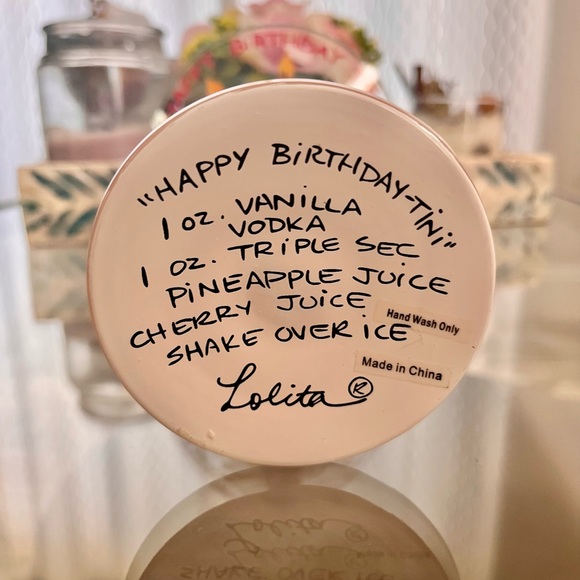 HAPPY BIRTHDAY
"HAPPY BiRTHDAY-TiNi"
1 oz. VANiLLA
VODKA
1 oz. TRiPLE SEC
PiNEAPPLE JUiCE
CHERRY JUiCE
SHAKE OVER iCE
Hand Wash Only
Made in China
Lolita®
Lolita
SHAKE OVER ICE